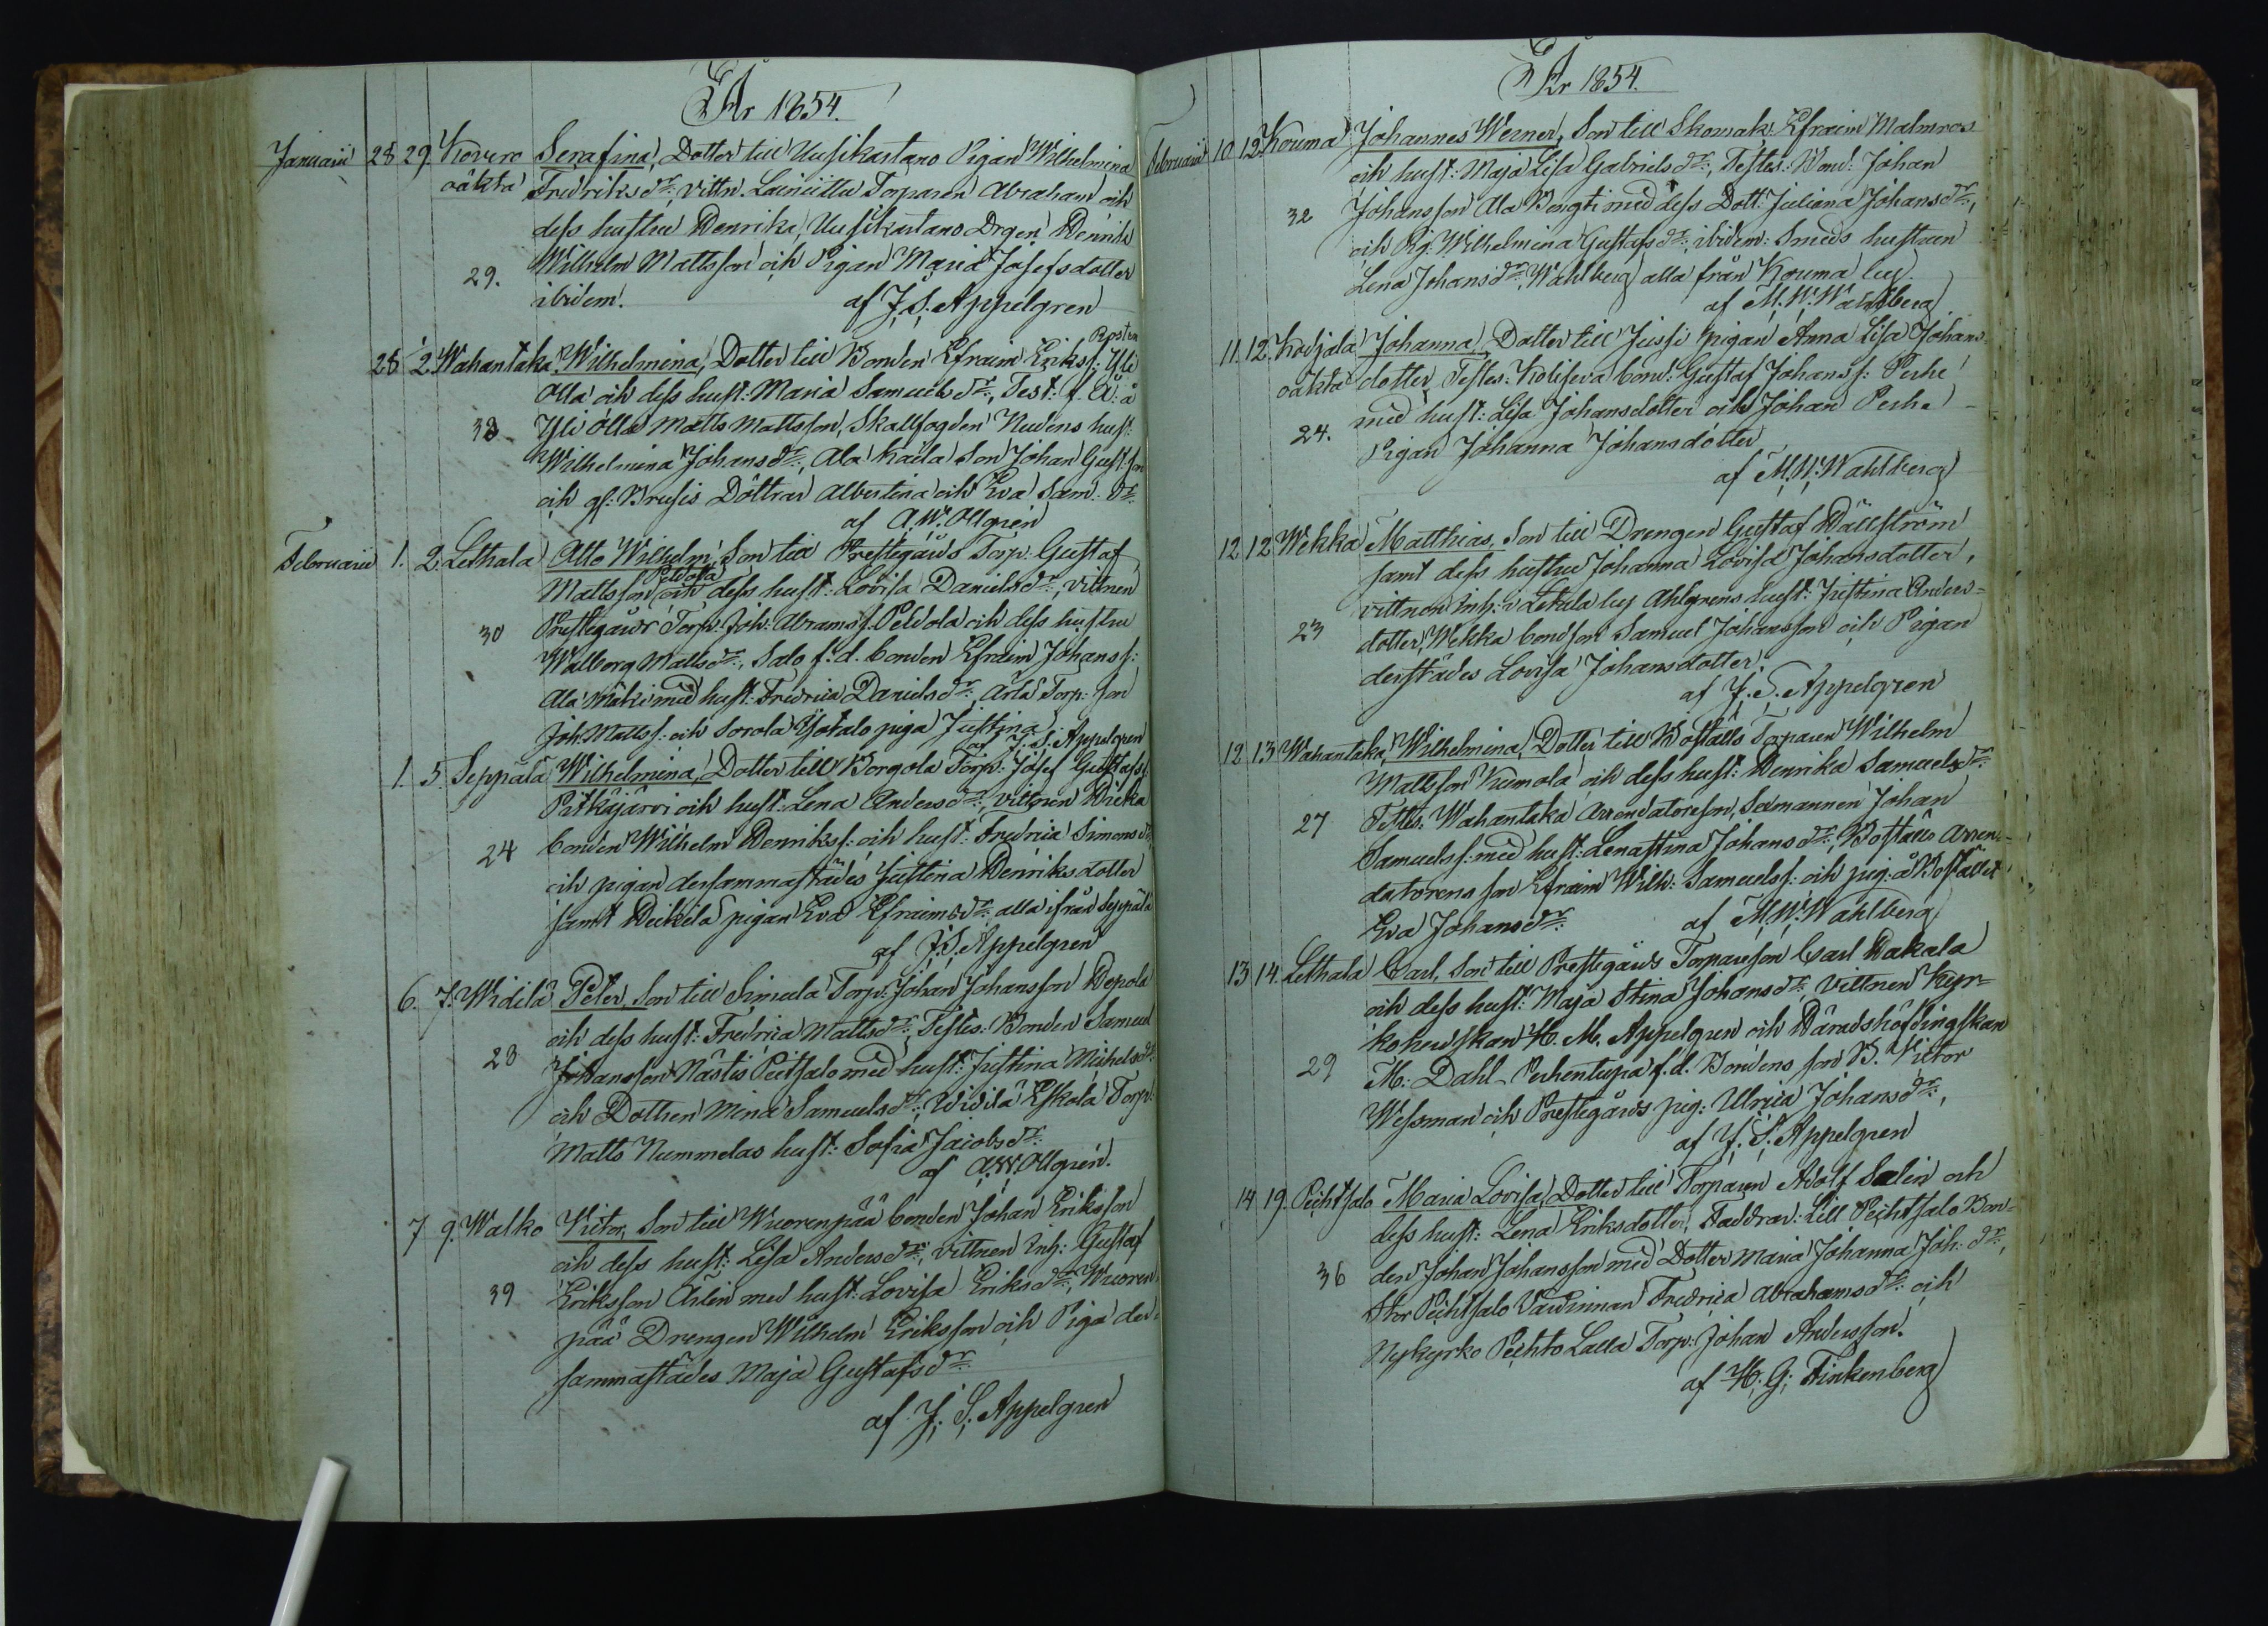 År 1854.
Januarii 28 29. Kovero Serafina, Dotter till Uusikartano Pigan Wilhelmina
oäkta Fredriksdr:, vittn. Torparen Abraham och
dess hustru Henrika, Uusikartano Drgen Henrik
Wilhelm Mattsson och Pigan Maria Josefsdotter
29.
ibidem. af J. S. Appelgren
28 2 Wahantaka Wilhelmina, Dotter till Bonden Efraim Eriks s: Yli
Olla och dess hust: Maria Samuelsdr:, Test: f. å
33 Yli Olla Matts Mattsson, Skallfogden hust:
Wilhelmina Johansdr:, Ala Kaila Son Johan Gust:son
och gl: Brusis Döttrar Albertina och Eva Sam: dr:
af A. W. Ollgren
Februarii 1. 2. Lethala Otto Wilhelm, Son till Prestegårds Torp. Gustaf
Peldola
Mattsson och dess hust: Lovisa Danielsdr:, vittnen
30 Prestegårds Torp. Joh: Abrams s. Peldola och dess hustru
Walborg Mattsdr:, Salo f. d. bonden Efraim Johans s:
Ala Mäki med hust: Fredrica Danielsdr:, Torp: son
Joh. Matts s: och Sorola Ylötalo piga Justina
af J. S. Appelgren
1. 5. Seppälä Wilhelmina, Dotter till Borgola Torp: Josef Gustafs s:
Pitkäjärvi och hust: Lena Andersdr:, vittnen
24 bonden Wilhelm Henriks s: och hust: Fredrica Simonsdr
och pigan dersammastädes Justina Henriksdotter
samt Heikilä pigan Eva Efraimsdr: alla ifrån Seppälä
af J. S. Appelgren
6. 7. Widilä Peter, Son till Simula Torp: Johan Johansson Hepola
och dess hust: Fredrica Mattsdr:, Testes: Bonden Samuel
28 Johansson Nästis Peitsalo med hust: Justina Michelsdr:
och Dottren Mina Samuelsdr:, Widilä Eskola Torp:
Matts Nummelas hust: Sofia Jacobsdr:
af A. W. Ollgren.
7 9. Walko Victor, Son till Wuorenpää bonden Johan Eriksson
och dess hust: Lisa Andersdr:, vittnen Inh: Gustaf
39 Eriksson Åhlin med hust: Lovisa Eriksdr:, Wuoren-
pää Drengen Wilhelm Eriksson och Piga der-
sammastädes Maja Gustafsdr:
af J. S. Appelgren
År 1854.
Februarii 10 12. Kouma Johannes Werner, Son till Skomak. Efraim Malmros
och hust: Maja Lisa Gabrielsdr:, Testes: Bond: Johan
32 Johansson Ala Bengti med dess Dott: Juliana Johansdr:,
och Pig. Wilhelmina Gustafsdr: ibidem: Smeds hustrun
Lena Johansdr: Wahlberg alla från Kouma by.
af M. W. Wahlberg
11. 12. Kodjala Johanna, Dotter till Jussi pigan Anna Lisa Johans-
oäkta dotter, Testes: bond: Gustaf Johans s: Perhe
med hust: Lisa Johansdotter och Johan Perhe
24.
Pigan Johanna Johansdotter
af M. W. Wahlberg
12 12 Wekka Matthias, Son till Drengen Gustaf Hällström
samt dess hustru Johanna Lovisa Johansdotter,
vittnen Inh: i Letala by Ahlgrens hust: Justina Anders-
23 dotter, Wekka bondson Samuel Johansson och Pigan
derstädes Lovisa Johansdotter.
af J. S. Appelgren
12 13 Wahantaka Wilhelmina, Dotter till Boställs Torparen Wilhelm
Mattsson Kumola och dess hust: Henrika Samuelsdr:
27 Testes: Wahantaka Arrendatorsson, Sexmannen Johan
Samuels s: med hust: Lenastina Johansdr:, Boställs Arren-
datorens son Efraim Wilh: Samuels s: och pig: å Bostället
Eva Johansdr: af M. W. Wahlberg
13 14. Lethala Carl, Son till Prestegårds Torpareson Carl Hakala
och dess hust: Maja Stina Johansdr:, vittnen Kyr-
koherdskan H. M. Appelgren och Häradshöfdingskan
29 M. Dahl. Perhentupa f. d. Bondens son B. Victor
Wessman och Prestegårds pig: Ulrica Johansdr:,
af J. S. Appelgren
14 19. Pechtsalo Maria Lovisa, Dotter till Torparen Adolf Salin och
dess hust: Lena Eriksdotter, Faddrar: Lill Pechtsalo Bon-
36 den Johan Johansson med Dotter Maria Johanna Joh: dr:,
Stor Pechtsalo Värdinnan Fredrica Abrahamsdr: och
Nykyrko Pechto Lalla Torp: Johan Andersson.
af H. G. Finkenberg